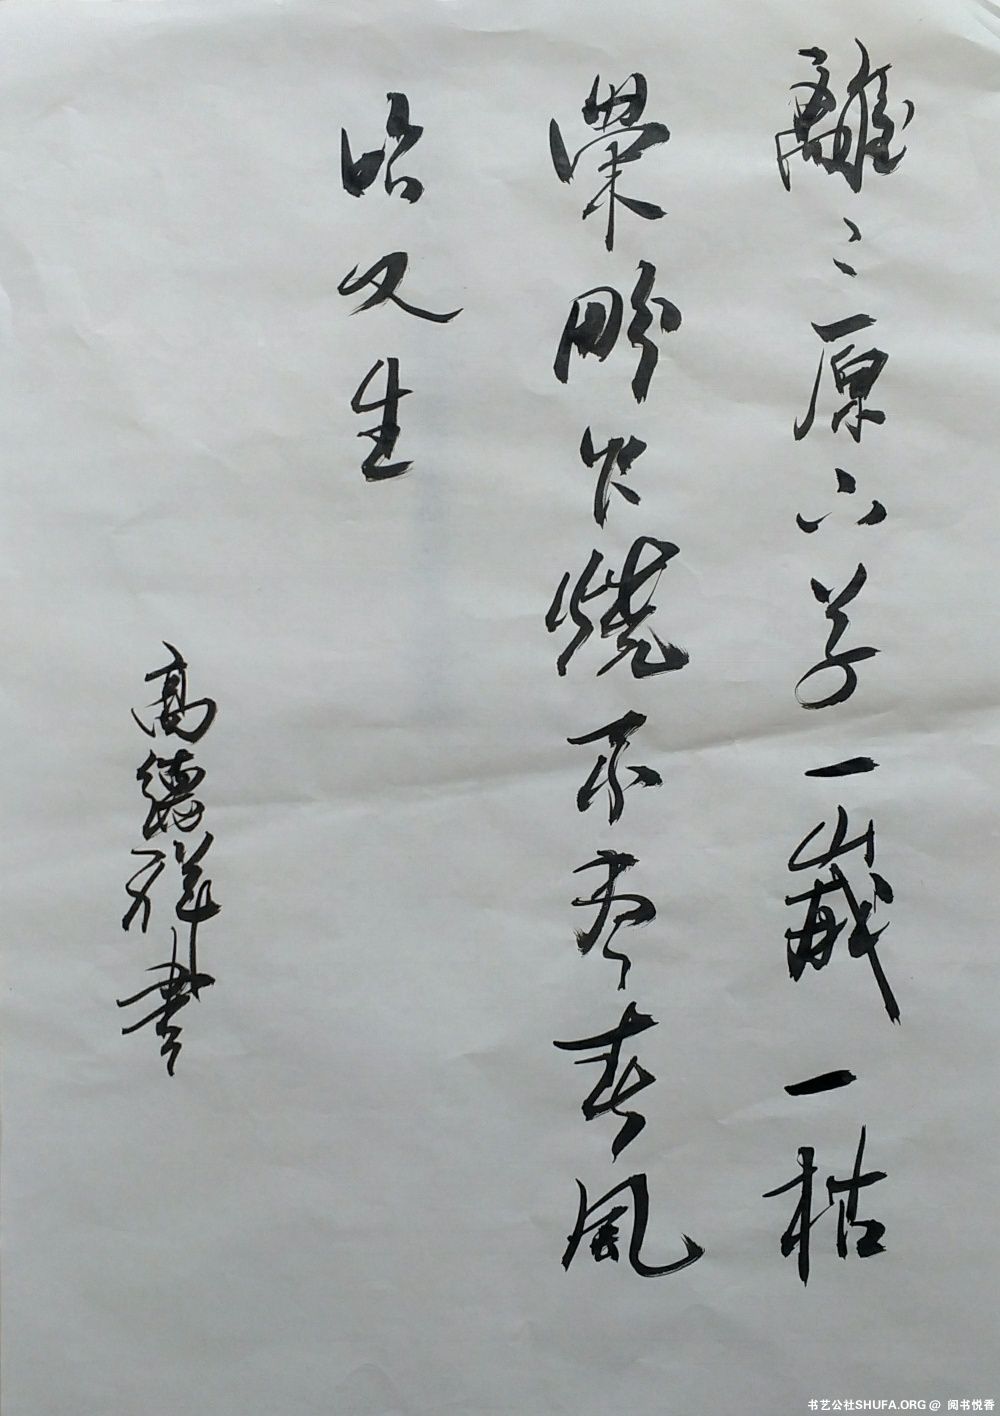 離〻原上草一歲一枯
榮野火燒不盡春風
吹又生
高德祥書
书艺公社SHUFA.ORG @ 阅书悦香